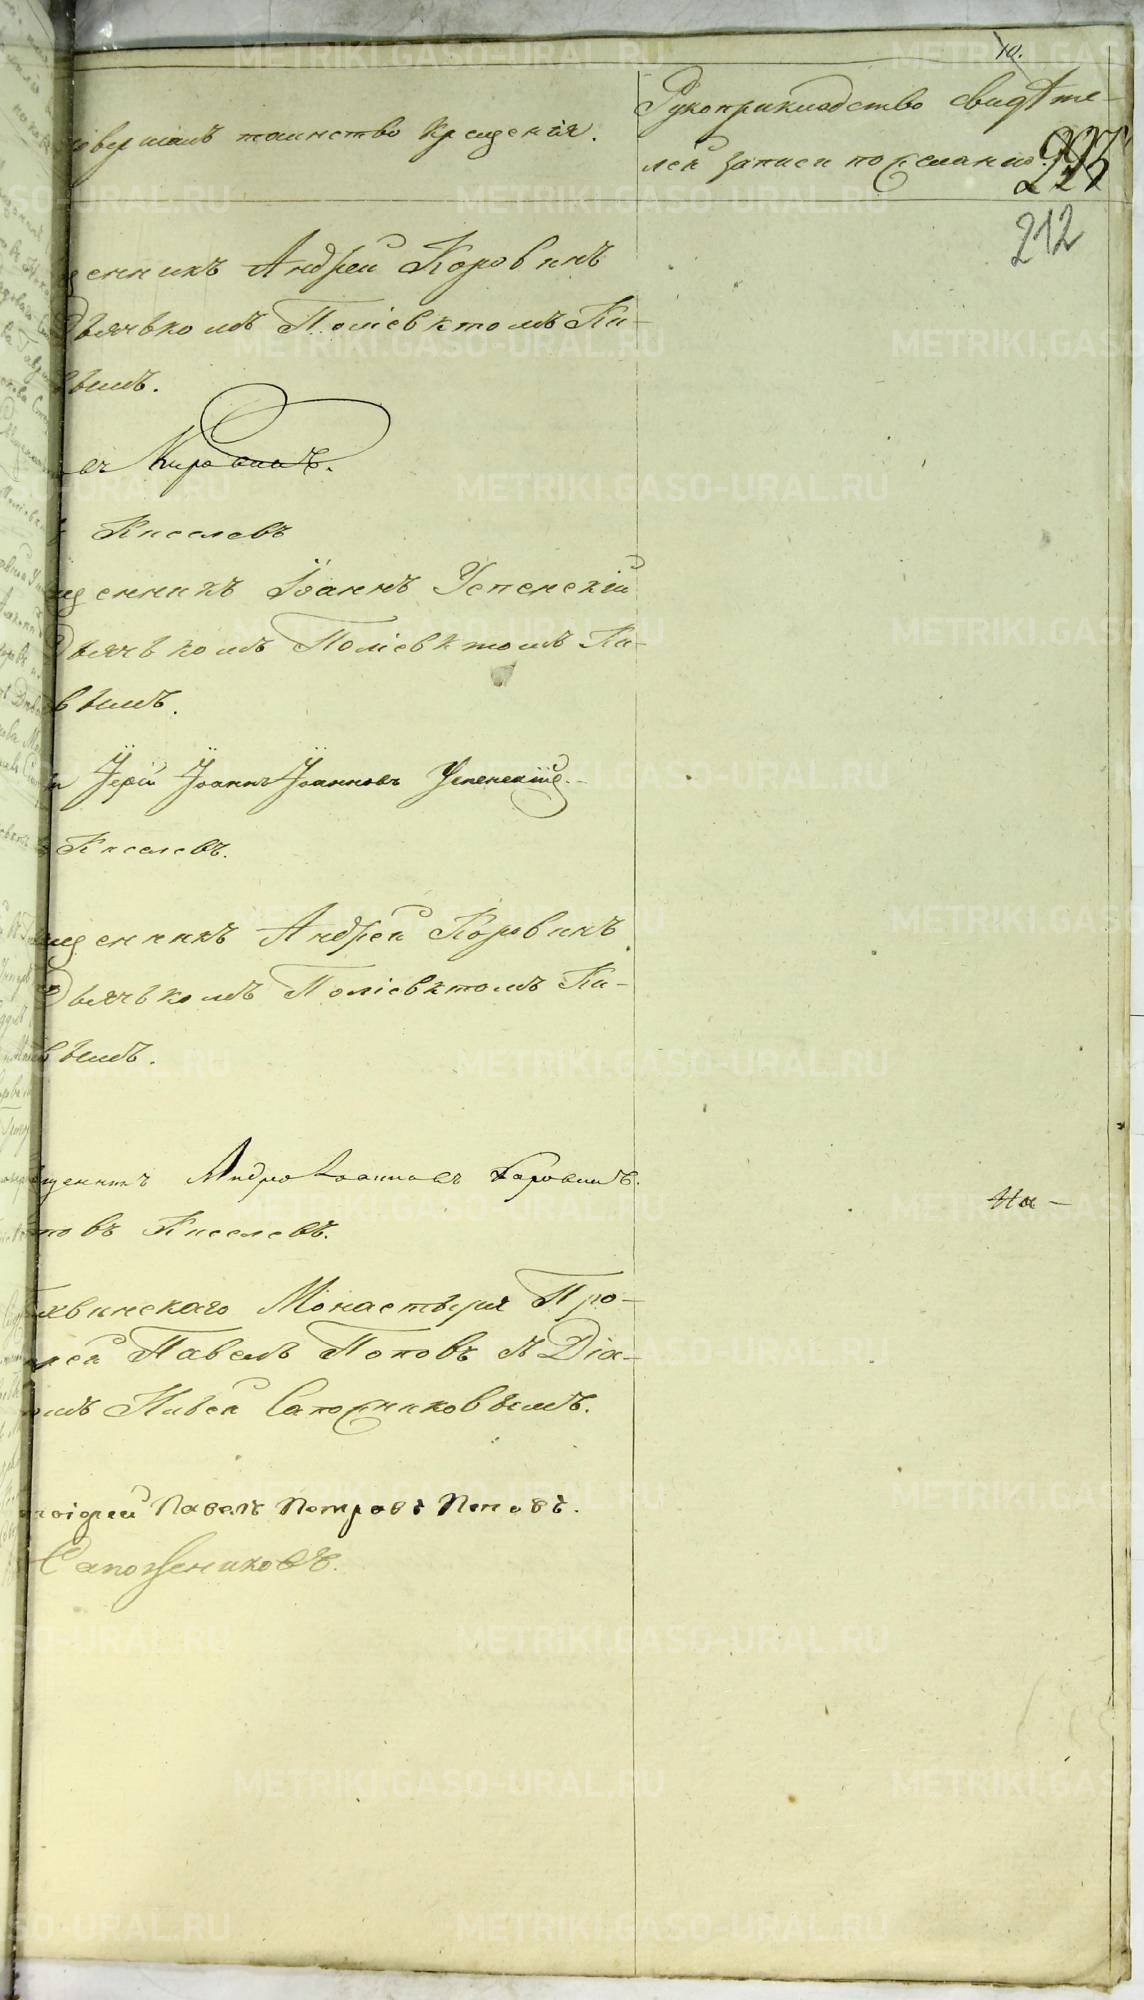 10.
совершалъ таинство крещенія.
Рукоприкладство свидѣте-
лей записи по желанію.
223
212
щенникъ Андрей Коровинъ
Дьячькомъ Поліевктомъ Ки-
вымъ.
Коровинъ.
Киселевъ
щенникъ Іоаннъ Успенскій
Дьячькомъ Поліевктомъ Ки-
вымъ.
Іерей Іоаннъ Іоанновъ Успенскій.
Киселевъ.
щенникъ Андрей Коровинъ
Дьячькомъ Поліевктомъ Ки-
вымъ.
щенникъ Андрей Іоанновъ Коровинъ.
товъ Киселевъ.
Но-
хвинскаго Монастыря Про-
рей Павелъ Поповъ съ Діа-
омъ Сапожниковымъ.
тоіерей Павелъ Петровъ Поповъ.
Сапожниковъ.
METRIKI.GASO-URAL.RU